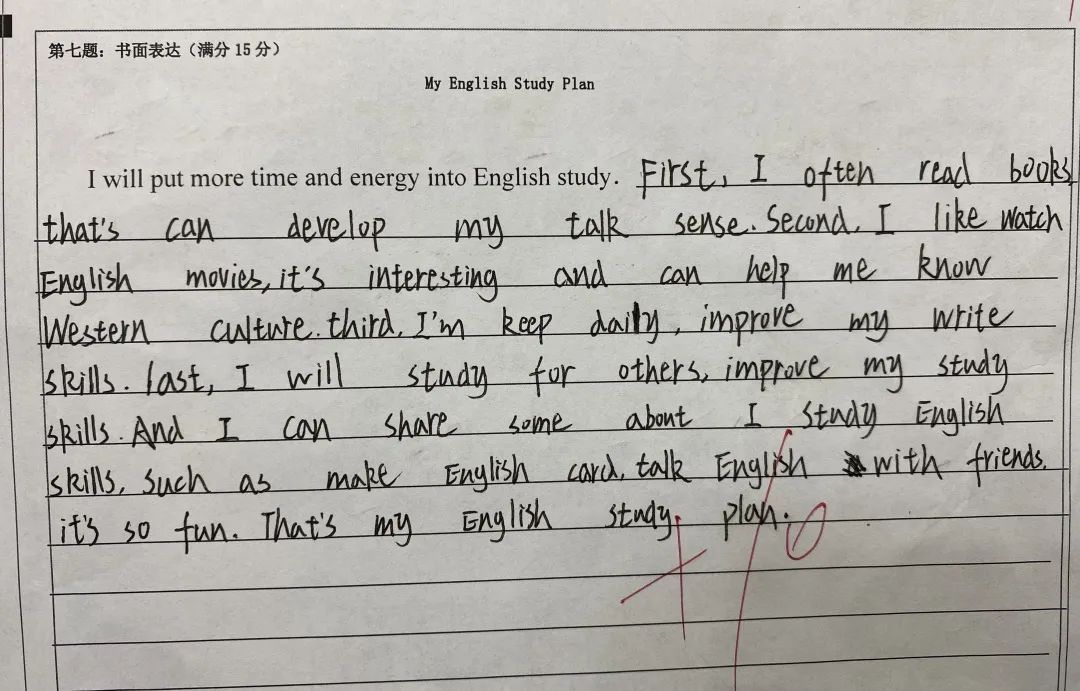 第七题：书面表达（满分 15 分）
My English Study Plan
I will put more time and energy into English study. First, I often read books,
that's can develop my talk sense. Second, I like watch
English movies, it's interesting and can help me know
Western culture. third, I'm keep daily, improve my write
skills. last, I will study for others, improve my study
skills. And I can share some about I study English
skills, such as make English card, talk English with friends.
it's so fun. That's my English study plan.
+10